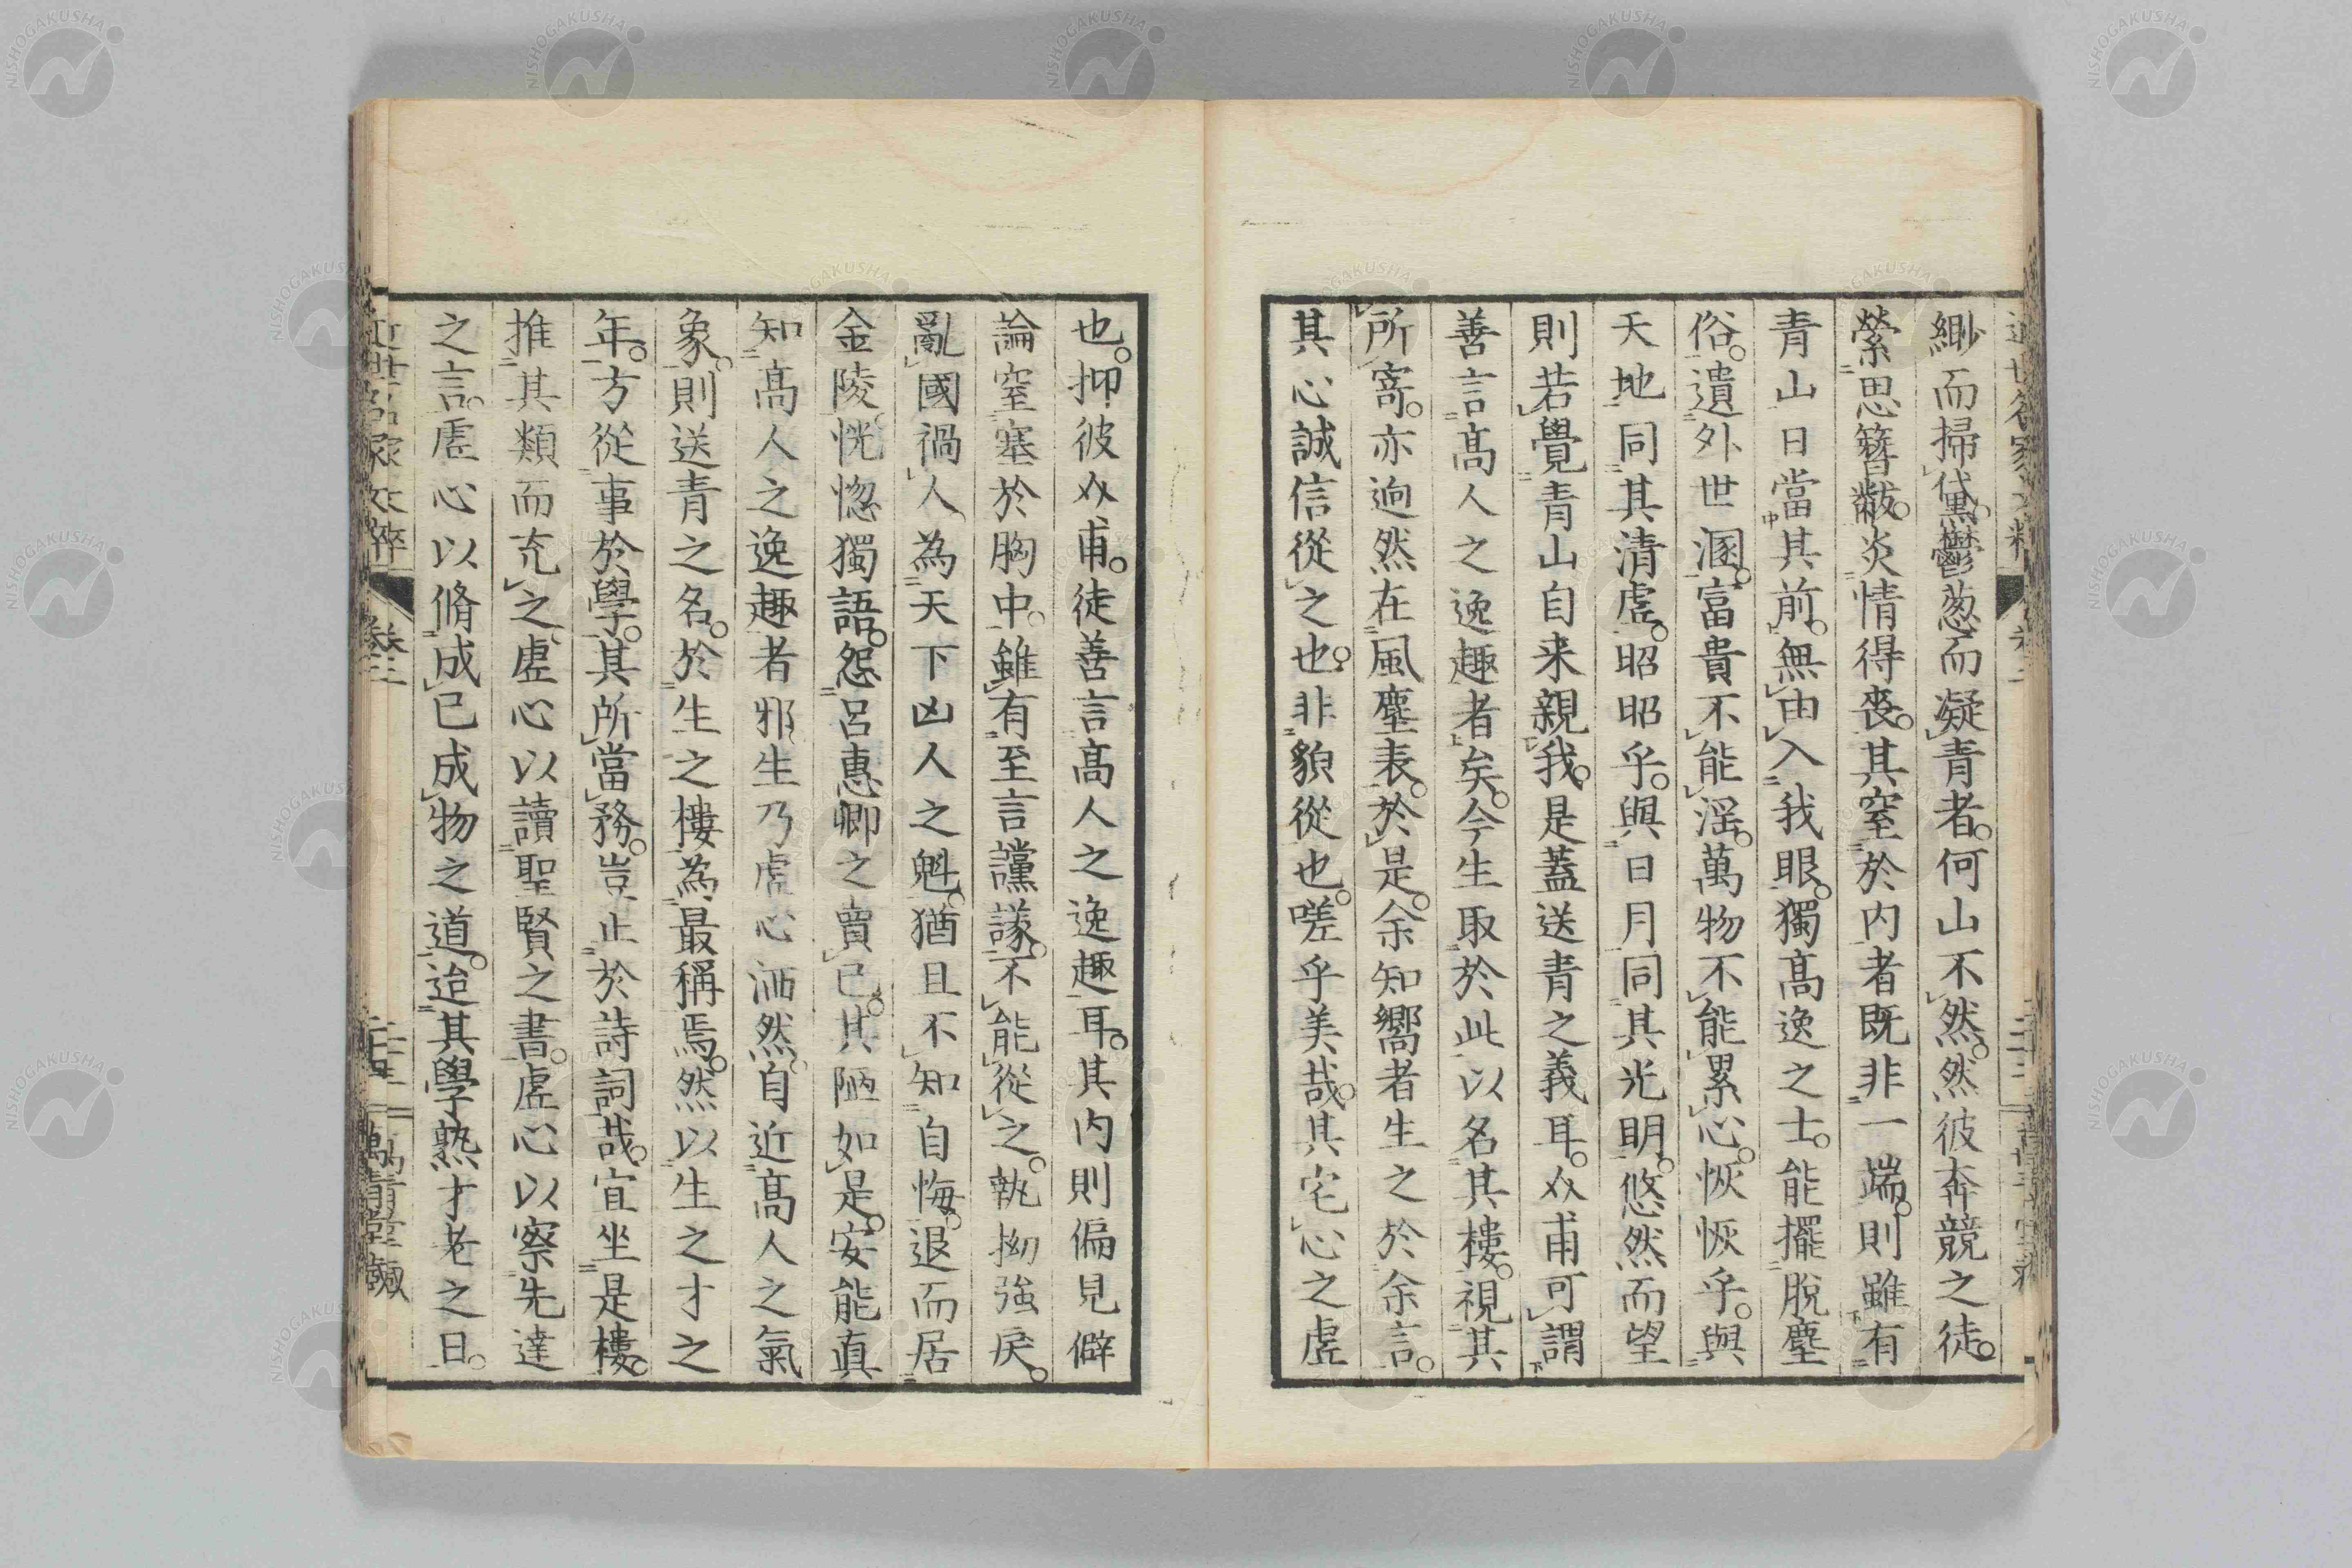 緲而掃黛。鬱葱而凝青者。何山不然。然彼奔競之徒。
縈思簪黻。炎情得喪。其窒於内者既非一端。則雖有
青山日當其前。無由入我眼。獨髙逸之士。能擺脫塵
俗。遺外世溷。富貴不能滛。萬物不能累心。恢恢乎。與
天地同其清虗。昭昭乎。與日月同其光明。悠然而望
則若覺青山自来親我。是蓋送青之義耳。㸚甫可謂
善言髙人之逸趣者矣。今生取於此以名其樓。視其
所寄。亦逈然在風塵表。於是。余知嚮者生之於余言。
其心誠信從之也。非貌從也。嗟乎美哉。其宅心之虗
也。抑彼㸚甫。徒善言髙人之逸趣耳。其内則偏見僻
論窒塞於胸中。雖有至言讜議。不能從之。執拗強戾。
亂國禍人。為天下凶人之魁。猶且不知自悔。退而居
金陵。恍惚獨語。怨呂惠卿之賣已。其陋如是。安能眞
知髙人之逸趣者邪。生乃虗心洒然。自近髙人之氣
象。則送青之名。於生之樓為最稱焉。然以生之才之
年。方從事於學。其所當務。豈止於詩詞哉。宜坐是樓。
推其類而充之。虗心以讀聖賢之書。虗心以察先達
之言。虗心以脩成已成物之道。迨其學熟才老之日。
近世名家文粹 卷二